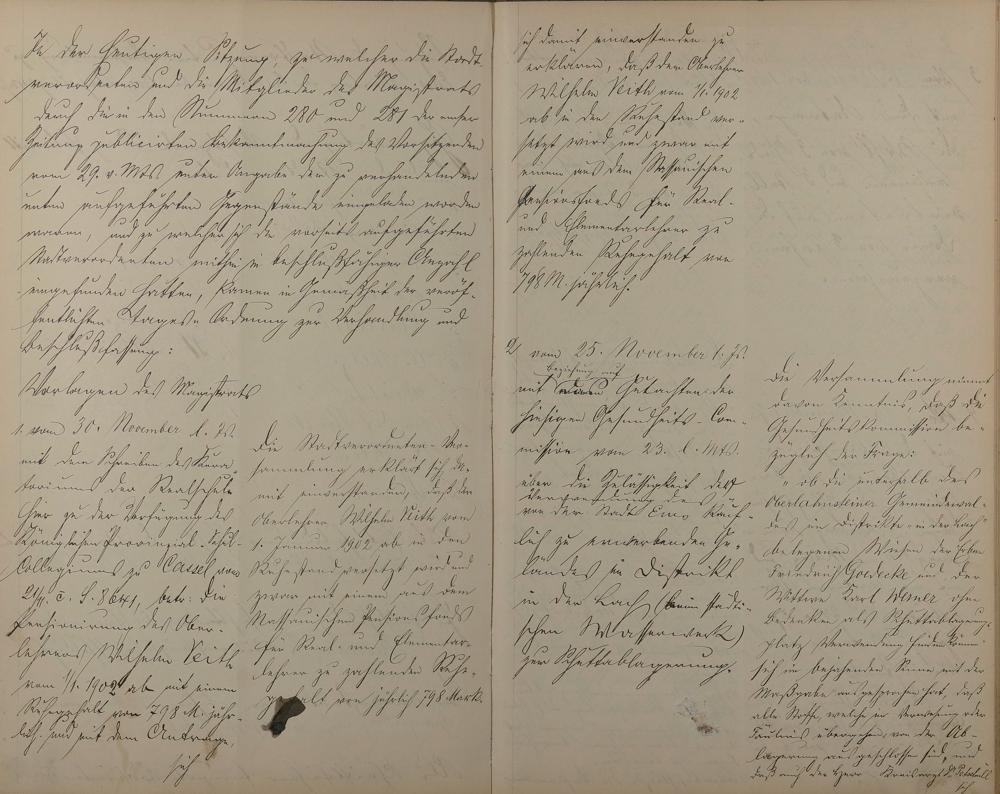 In der heutigen Sitzung, zu welcher die Stadt-
verordneten und die Mitglieder des Magistrats
durch die in den Nummern 280 und 281 der
Zeitung publicirten Bekanntmachung des Vorsitzenden
vom 29. v. Mts unter Angabe der zu verhandelnden
unten aufgeführten Gegenstände eingeladen worden
waren, und zu welcher sich die vorseits aufgeführten
Stadtverordneten mithin in beschlußfähiger Anzahl
eingefunden hatten, kamen in Gemäßheit der veröf-
fentlichten Tages-Ordnung zur Verhandlung und
Beschlußfassung:
Vorlagen des Magistrats
1. vom 30. November l. Js.
mit dem Schreiben des Kura-
toriums der Realschule
hier zu der Verfügung des
Königlichen Provinzial-Schul-
Collegiums zu Cassel vom
betr: die
Pensionirung des Ober-
lehrers Wilhelm Veith
vom 1/1. 1902 ab mit einem
Ruhegehalt von 798 M. jähr-
lich und mit dem Antrage,
sich
Die Stadtverordneten-Ver-
sammlung erklärt sich da-
mit einverstanden, daß der
Oberlehrer Wilhelm Veith vom
1. Januar 1902 ab in den
Ruhestand versetzt wird und
zwar mit einem aus dem
Nassauischen Pensionsfonds
für Real- und Elementar-
lehrer zu zahlenden Ruhe-
gehalt von jährlich 798 Mark.
sich damit einverstanden zu
erklären, daß der Oberlehrer
Wilhelm Veith vom 1/1. 1902
ab in den Ruhestand ver-
setzt wird und zwar mit
einem aus dem Nassauischen
Pensionsfonds für Real-
und Elementarlehrer zu
zahlenden Ruhegehalt von
798 M. jährlich.
2) vom 25. November l. Js.
Beziehung auf
mit Gutachten der
hiesigen Gesundheits-Com-
mission vom 23. l. Mts.
über die Zulässigkeit der
Verwendung des
von der Stadt Ems käuf-
lich zu erwerbenden Ge-
landes im Distrikt
in der Lach (beim städti-
schen Wasserwerk)
zur Schuttablagerung.
Die Versammlung nimmt
davon Kenntnis, daß die
Gesundheitskommission be-
züglich der Frage:
" ob die unterhalb des
Oberlahnsteiner Gemeindewal-
des im Distrikte "in der Lach"
belegenen Wiesen der Erben
Friedrich Goedecke und der
Wittwe Karl Werner ohne
Bedenken als Schuttablagerungs-
platz Verwendung finden können
sich im bejahenden Sinne mit der
Maßgabe ausgesprochen hat, daß
alle Stoffe, welche in Verwesung oder
Fäulnis übergehen, von der Ab-
lagerung ausgeschlossen sind, und
daß auch der Herr Kreisarzt Dr
sich